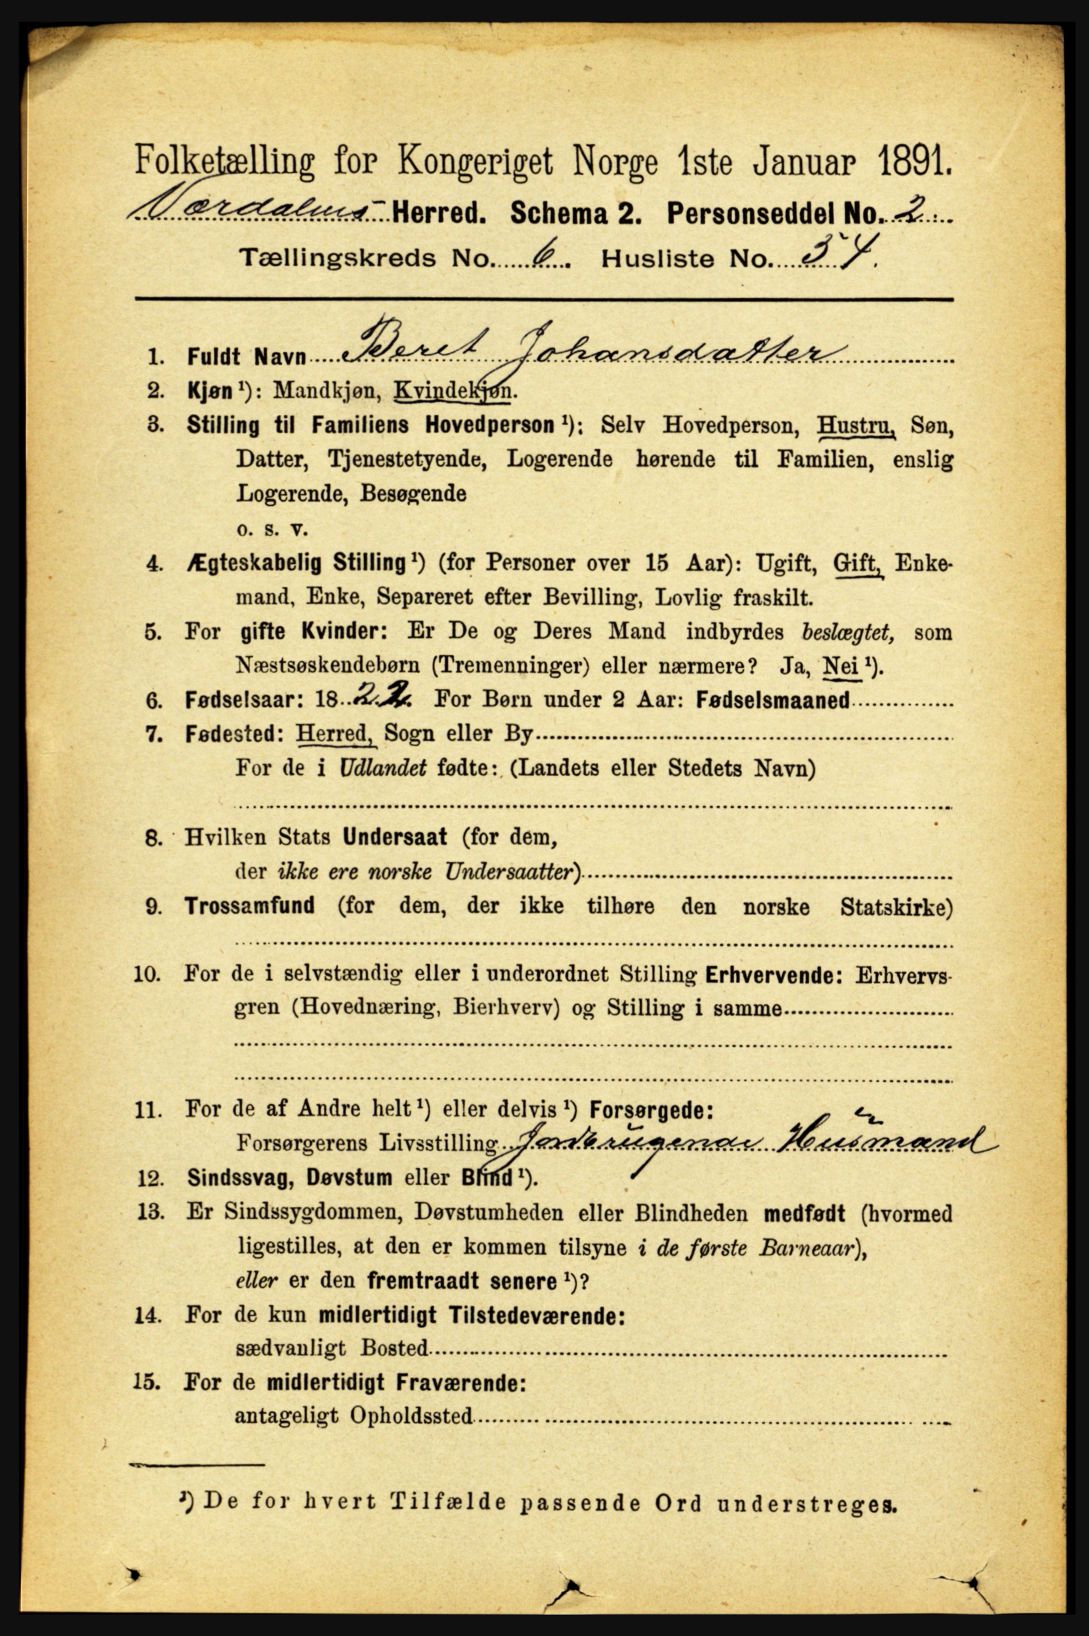 Folketælling for Kongeriget Norge 1ste Januar 1891.
Værdalens Herred. Schema 2. Personseddel No. 2.
Tællingskreds No. 6. Husliste No. 34.
1. Fuldt Navn Beret Johansdatter
2. Kjøn ¹): Mandkjøn, Kvindekjøn.
3. Stilling til Familiens Hovedperson ¹): Selv Hovedperson, Hustru, Søn,
Datter, Tjenestetyende, Logerende hørende til Familien, enslig
Logerende, Besøgende
o. s. v.
4. Ægteskabelig Stilling ¹) (for Personer over 15 Aar): Ugift, Gift, Enke-
mand, Enke, Separeret efter Bevilling, Lovlig fraskilt.
5. For gifte Kvinder: Er De og Deres Mand indbyrdes beslægtet, som
Næstsøskendebørn (Tremenninger) eller nærmere? Ja, Nei ¹).
6. Fødselsaar: 1822. For Børn under 2 Aar: Fødselsmaaned
7. Fødested: Herred, Sogn eller By
For de i Udlandet fødte: (Landets eller Stedets Navn)
8. Hvilken Stats Undersaat (for dem,
der ikke ere norske Undersaatter)
9. Trossamfund (for dem, der ikke tilhøre den norske Statskirke)
10. For de i selvstændig eller i underordnet Stilling Erhvervende: Erhvervs-
gren (Hovednæring, Bierhverv) og Stilling i samme
11. For de af Andre helt ¹) eller delvis ¹) Forsørgede:
Forsørgerens Livsstilling Jordbrugende Husmand
12. Sindssvag, Døvstum eller Blind ¹).
13. Er Sindssygdommen, Døvstumheden eller Blindheden medfødt (hvormed
ligestilles, at den er kommen tilsyne i de første Barneaar),
eller er den fremtraadt senere ¹)?
14. For de kun midlertidigt Tilstedeværende:
sædvanligt Bosted
15. For de midlertidigt Fraværende:
antageligt Opholdssted
¹) De for hvert Tilfælde passende Ord understreges.